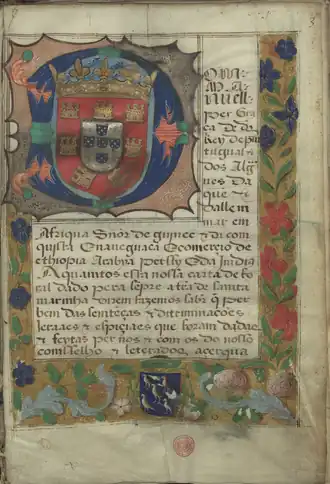 Dom Ma-
nuell
per Gra
ça de ds
Rey de por
tugual & 
dos Algr
ues da
quẽ &
dallem
mar em
Afriqua Sñor de guinee & da com
quista & naueguaçã & comercio de
ethiopia Arabia persia & da India
A quamtos esta nossa carta de fo
ral dado pera sẽpre a tra de santa
marinha virem fazemos saber q̃ per
bem das semtẽças & ditriminações
geraaes & espiçiaes que foram dadas
& feytas per nos & com os do nosso
comsselho & leterados acerqua